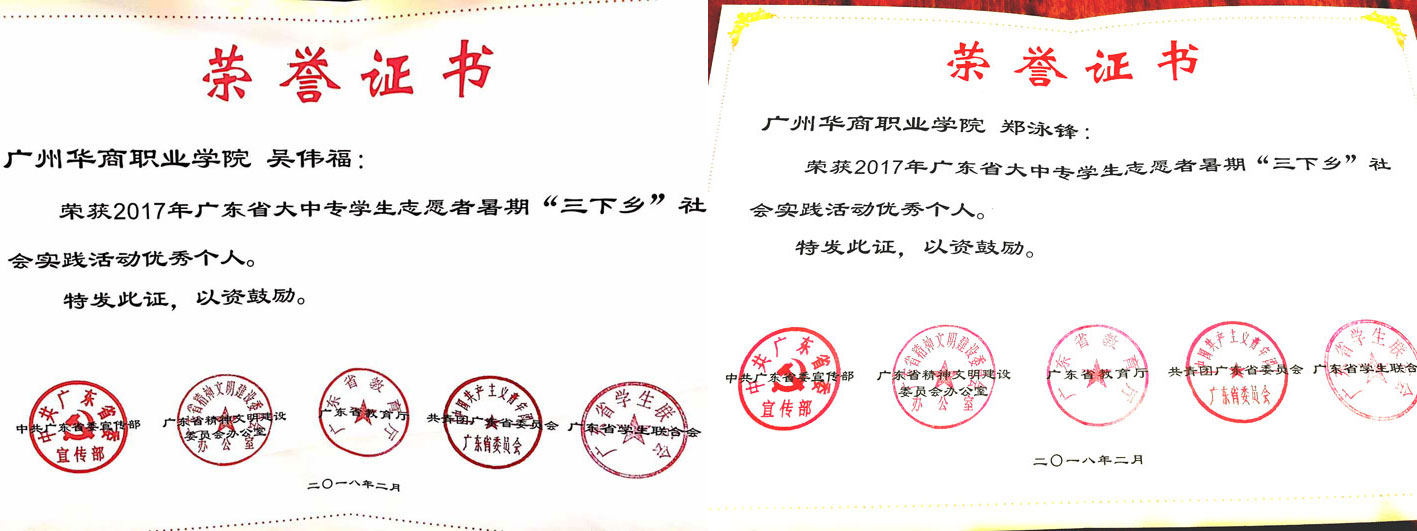 荣誉证书
广州华商职业学院 吴伟福：
荣获2017年广东省大中专学生志愿者暑期“三下乡”社
会实践活动优秀个人。
特发此证，以资鼓励。
中共广东省委宣传部
广东省精神文明建设
委员会办公室
广东省教育厅
共青团广东省委员会
广东省学生联合会
中共广东省委
宣传部
广东省精神文明建设委员会
办公室
广东省教育厅
中国共产主义青年团
广东省委员会
广东省学生联合会
二〇一八年二月
荣誉证书
广州华商职业学院 郑泳锋：
荣获2017年广东省大中专学生志愿者暑期“三下乡”社
会实践活动优秀个人。
特发此证，以资鼓励。
中共广东省委宣传部
广东省精神文明建设
委员会办公室
广东省教育厅
共青团广东省委员会
广东省学生联合
中共广东省委
宣传部
广东省精神文明建设委员会
办公室
广东省教育厅
中国共产主义青年团
广东省委员会
广东省学生联合会
二〇一八年二月